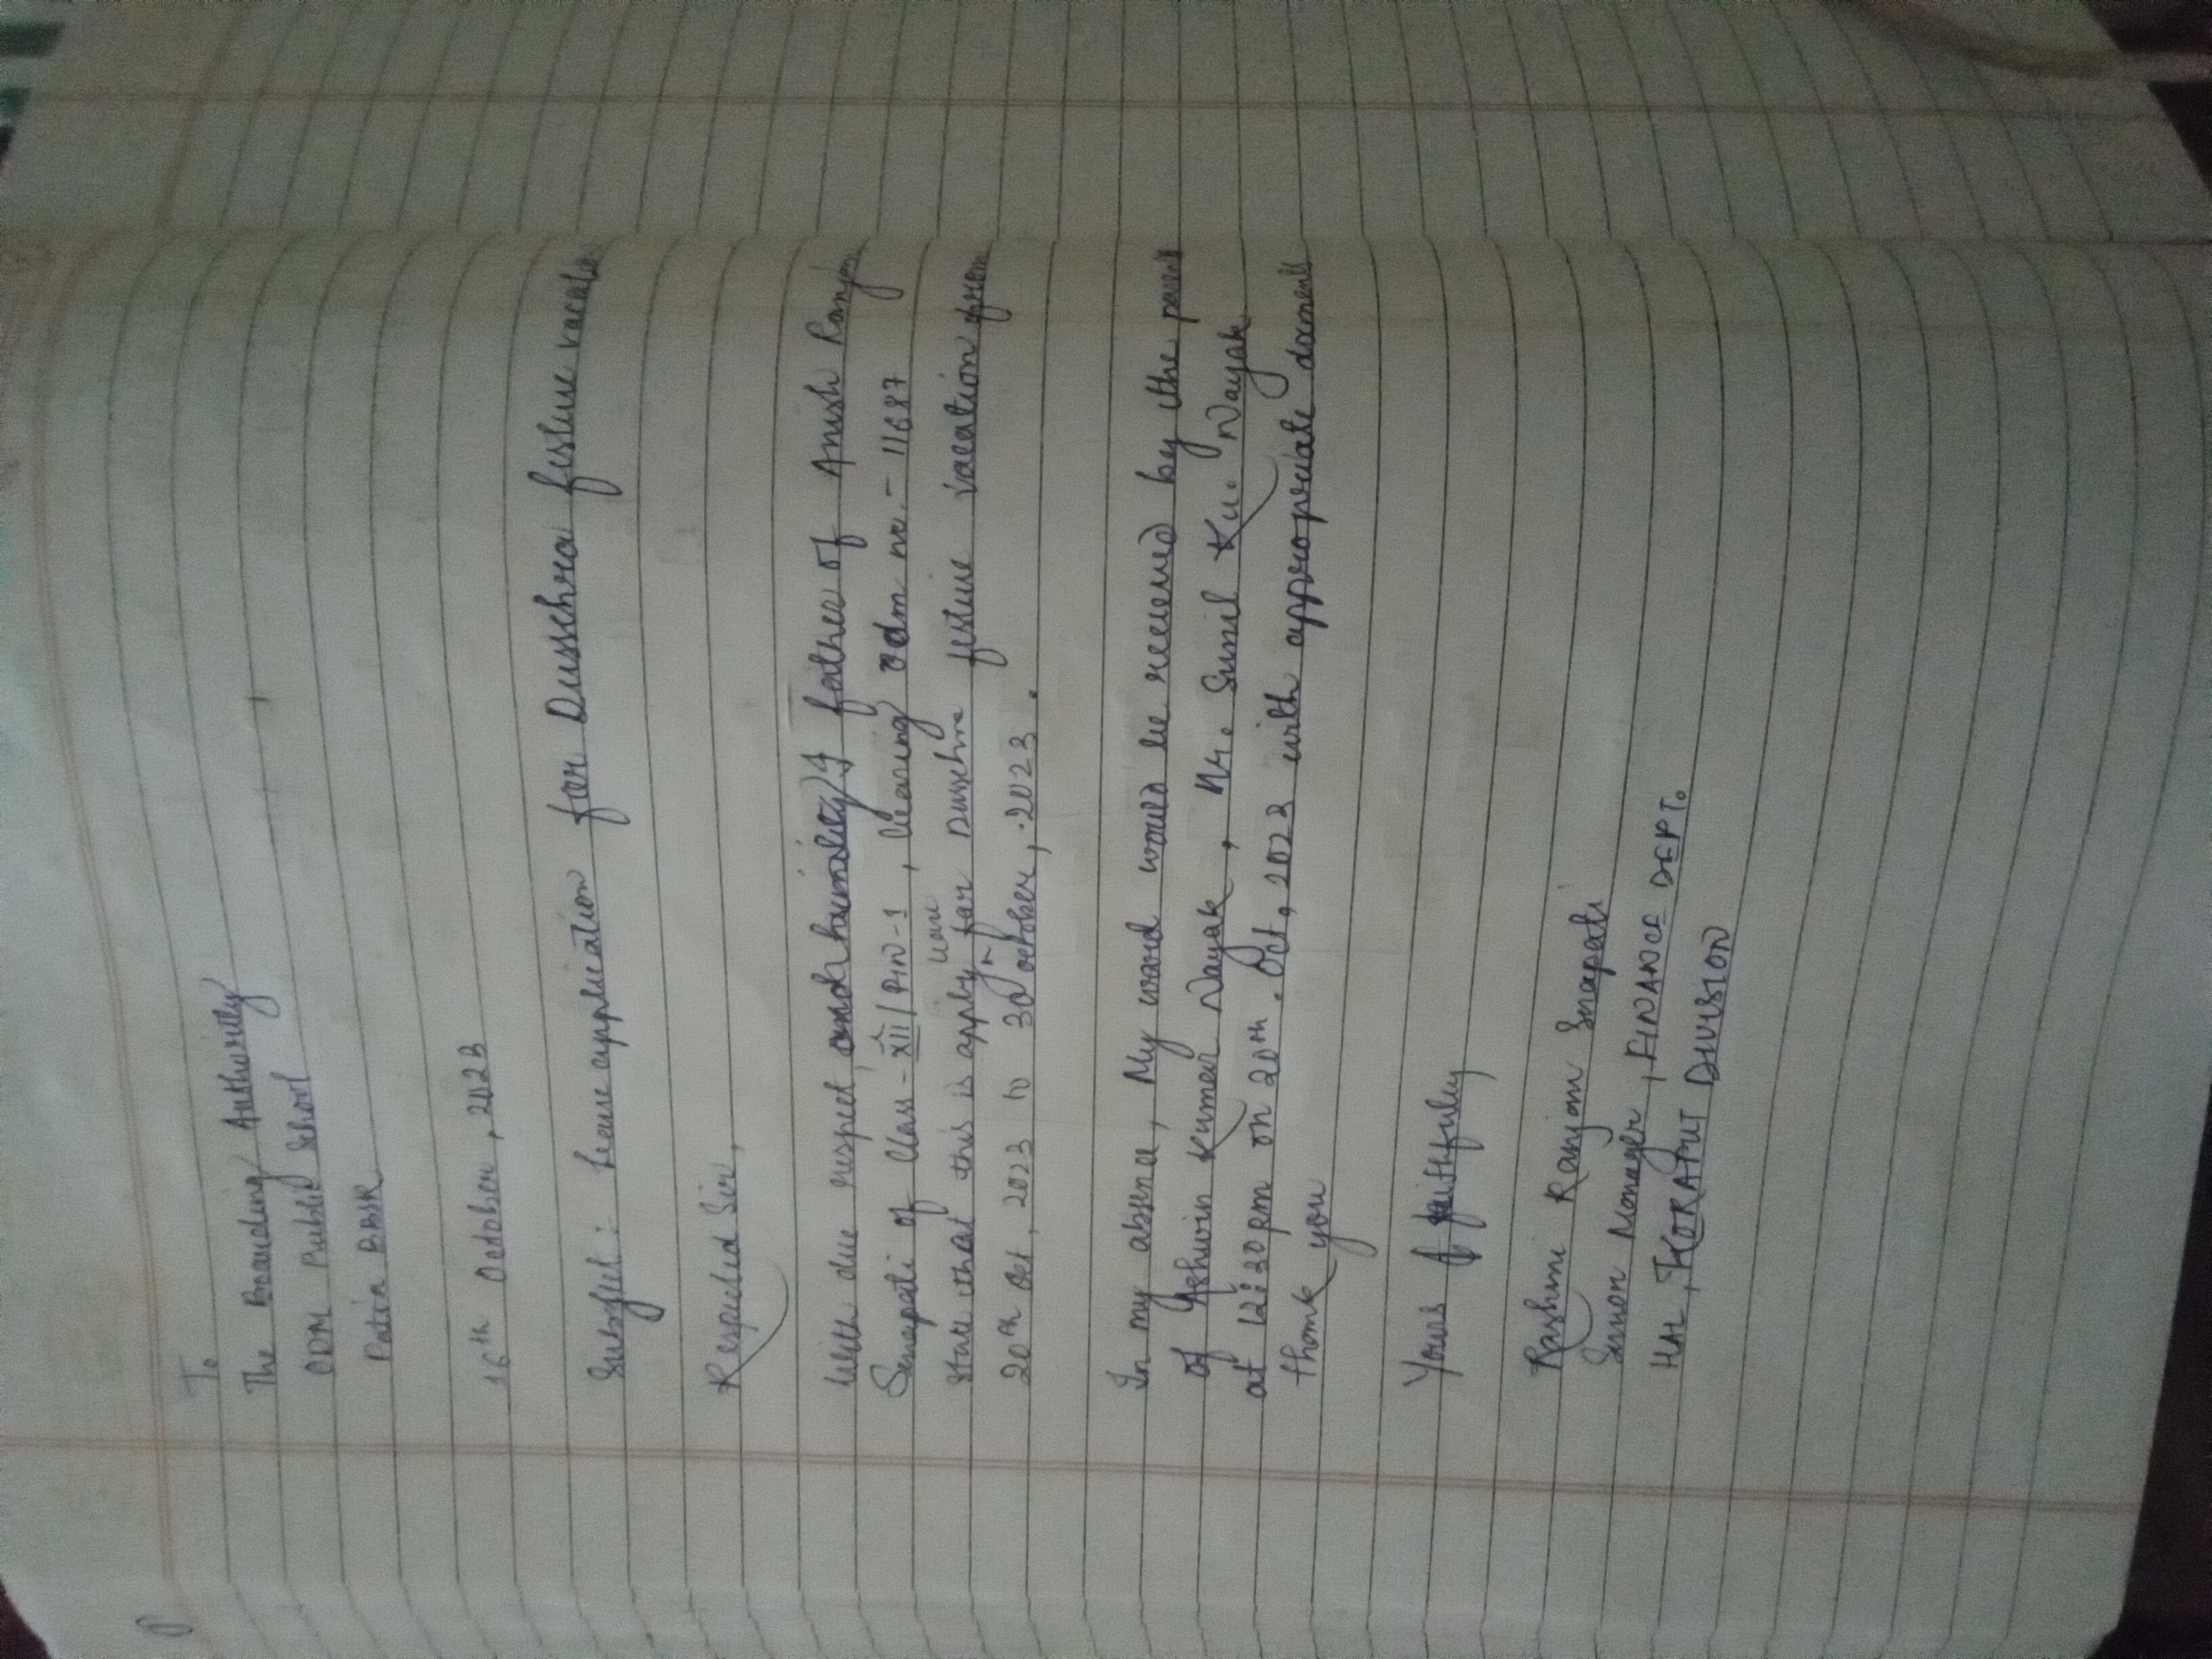 To
The Boarding Authority
ODM Public School
Patia BBSR
16th October, 2023
Subject :- Leave application for Dussehra festive vacation
Respected Sir,
With due respect and humility I father of Anish Ranjan
Senapati of Class - XII / PIN-1, bearing adm no. - 11687
State that this is apply leave for Dussehra festive vacation from
20th Oct, 2023 to 30 october, 2023.
In my absence, My ward would be received by the parent
of Ashwin Kumar Nayak, Mr. Sunil Ku. Nayak
at 12:30 pm on 20th. Oct, 2023 with appropriate documents
thank you
Yours faithfully
Rashmi Ranjan Senapati
Senior Manager, FINANCE DEPT.
HAL, KORAPUT DIVISION